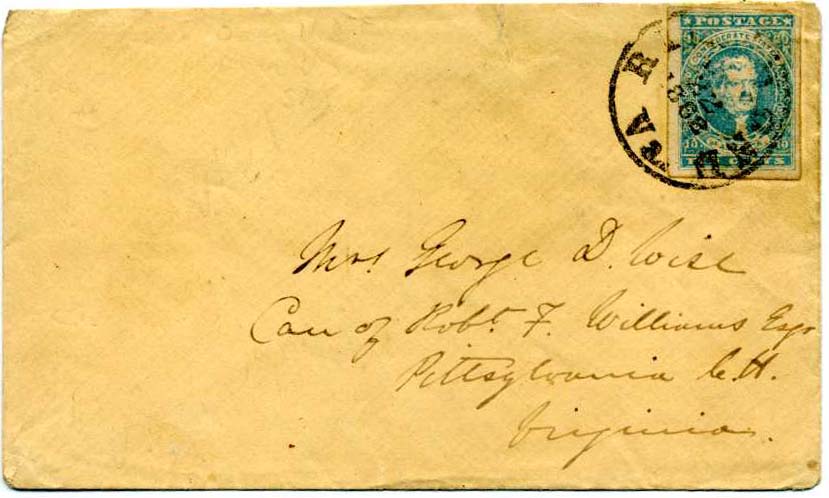 POSTAGE
CONFEDERATE STATES
10 10
TEN CENTS
RICHMOND VA.
Mrs George D. Wise
Care of Robt. F. Williams Esqr
Pittsylvania C.H.
Virginia.